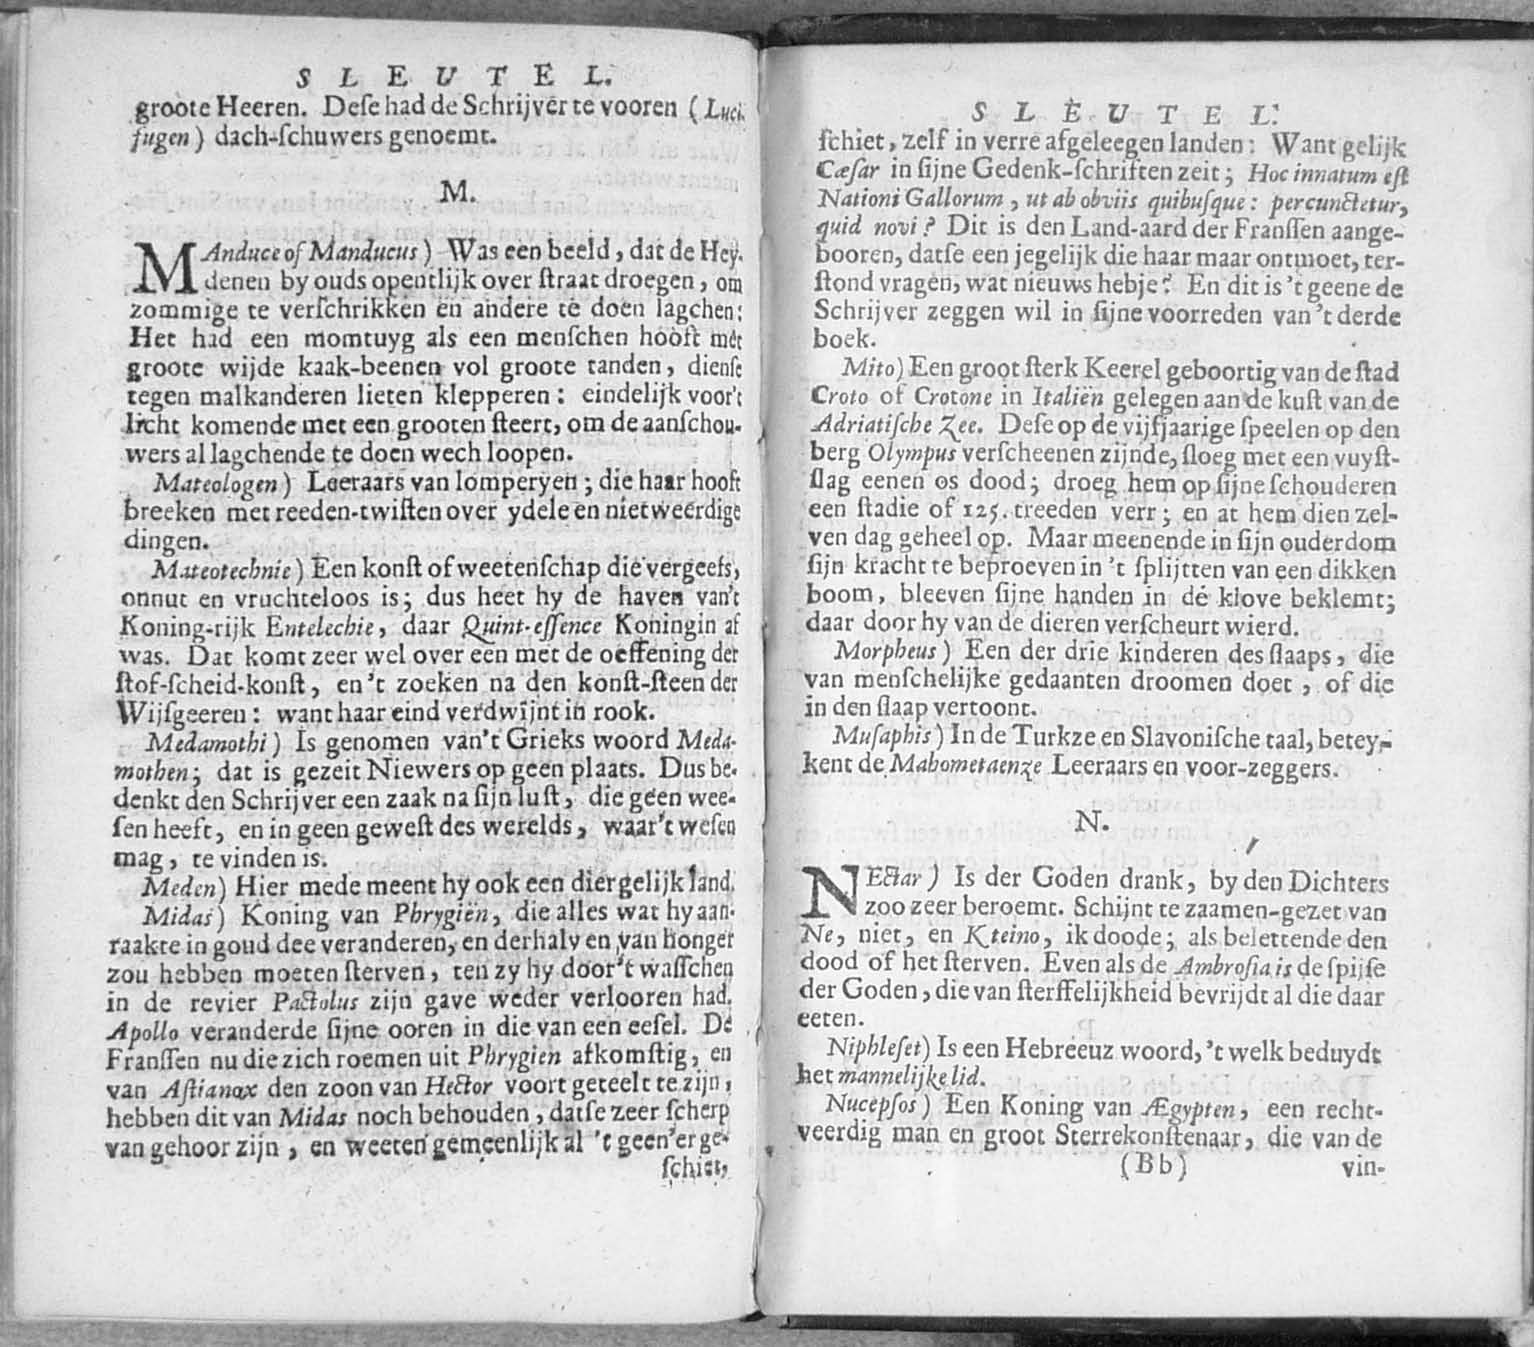 SLEUTEL.
groote Heeren. Deſe had de Schrijver te vooren (Luci-
fugen) dach-ſchuwers genoemt.
M.
MAnduce of Manducus) Was een beeld, dat de Hey-
denen by ouds opentlijk over ſtraat droegen, om
zommige te verſchrikken en andere te doen lagchen:
Het had een momtuyg als een menſchen hooft met
groote wijde kaak-beenen vol groote tanden, dienſe
tegen malkanderen lieten klepperen: eindelijk voor't
licht komende met een grooten ſteert, om de aanſchou-
wers al lagchende te doen wech loopen.
Mateologen) Leeraars van lomperyen; die haar hooft
breeken met reeden-twiſten over ydele en niet weerdige
dingen.
Mateotechnie) Een konſt of weetenſchap die vergeefs,
onnut en vruchteloos is; dus heet hy de haven van't
Koning-rijk Entelechie, daar Quint-eſſence Koningin af
was. Dat komt zeer wel over een met de oeffening der
ſtof-ſcheid-konſt, en't zoeken na den konſt-ſteen der
Wijſgeeren: want haar eind verdwijnt in rook.
Medamothi) Is genomen van't Grieks woord Meda-
mothen; dat is gezeit Niewers op geen plaats. Dus be-
denkt den Schrijver een zaak na ſijn luſt, die geen wee-
ſen heeft, en in geen geweſt des werelds, waar't weſen
mag, te vinden is.
Meden) Hier mede meent hy ook een diergelijk land.
Midas) Koning van Phrygiën, die alles wat hy aan-
raakte in goud dee veranderen, en derhalven van honger
zou hebben moeten ſterven, ten zy hy door't waſſchen
in de revier Pactolus zijn gave weder verlooren had.
Apollo veranderde ſijne ooren in die van een eeſel. De
Franſſen nu die zich roemen uit Phrygien afkomſtig, en
van Aſtianax den zoon van Hector voort geteelt te zijn,
hebben dit van Midas noch behouden, datſe zeer ſcherp
van gehoor zijn, en weeten gemeenlijk al 't geen'er ge-
ſchiet,
SLEUTEL.
ſchiet, zelf in verre afgeleegen landen: Want gelijk
Cæſar in ſijne Gedenk-ſchriften zeit; Hoc innatum eſt
Nationi Gallorum, ut ab obviis quibuſque: percunctetur,
quid novi? Dit is den Land-aard der Franſſen aange-
booren, datſe een jegelijk die haar maar ontmoet, ter-
ſtond vragen, wat nieuws hebje? En dit is 't geene de
Schrijver zeggen wil in ſijne voorreden van 't derde
boek.
Mito) Een groot ſterk Keerel geboortig van de ſtad
Croto of Crotone in Italiën gelegen aan de kuſt van de
Adriatiſche Zee. Deſe op de vijfjaarige ſpeelen op den
berg Olympus verſcheenen zijnde, ſloeg met een vuyſt-
ſlag eenen os dood; droeg hem op ſijne ſchouderen
een ſtadie of 125. treeden verr; en at hem dien zel-
ven dag geheel op. Maar meenende in ſijn ouderdom
ſijn kracht te beproeven in 't ſplijtten van een dikken
boom, bleeven ſijne handen in de klove beklemt;
daar door hy van de dieren verſcheurt wierd.
Morpheus) Een der drie kinderen des ſlaaps, die
van menſchelijke gedaanten droomen doet, of die
in den ſlaap vertoont.
Muſaphis) In de Turkze en Slavoniſche taal, betey-
kent de Mahometaenze Leeraars en voor-zeggers.
N.
NEctar) Is der Goden drank, by den Dichters
zoo zeer beroemt. Schijnt te zaamen-gezet van
Ne, niet, en Kteino, ik doode; als belettende den
dood of het ſterven. Even als de Ambroſia is de ſpijſe
der Goden, die van ſterffelijkheid bevrijdt al die daar
eeten.
Niphleſet) Is een Hebreeuz woord, 't welk beduydt
het mannelijke lid.
Nucepſos) Een Koning van Ægypten, een recht-
veerdig man en groot Sterrekonſtenaar, die van de
(Bb) vin-